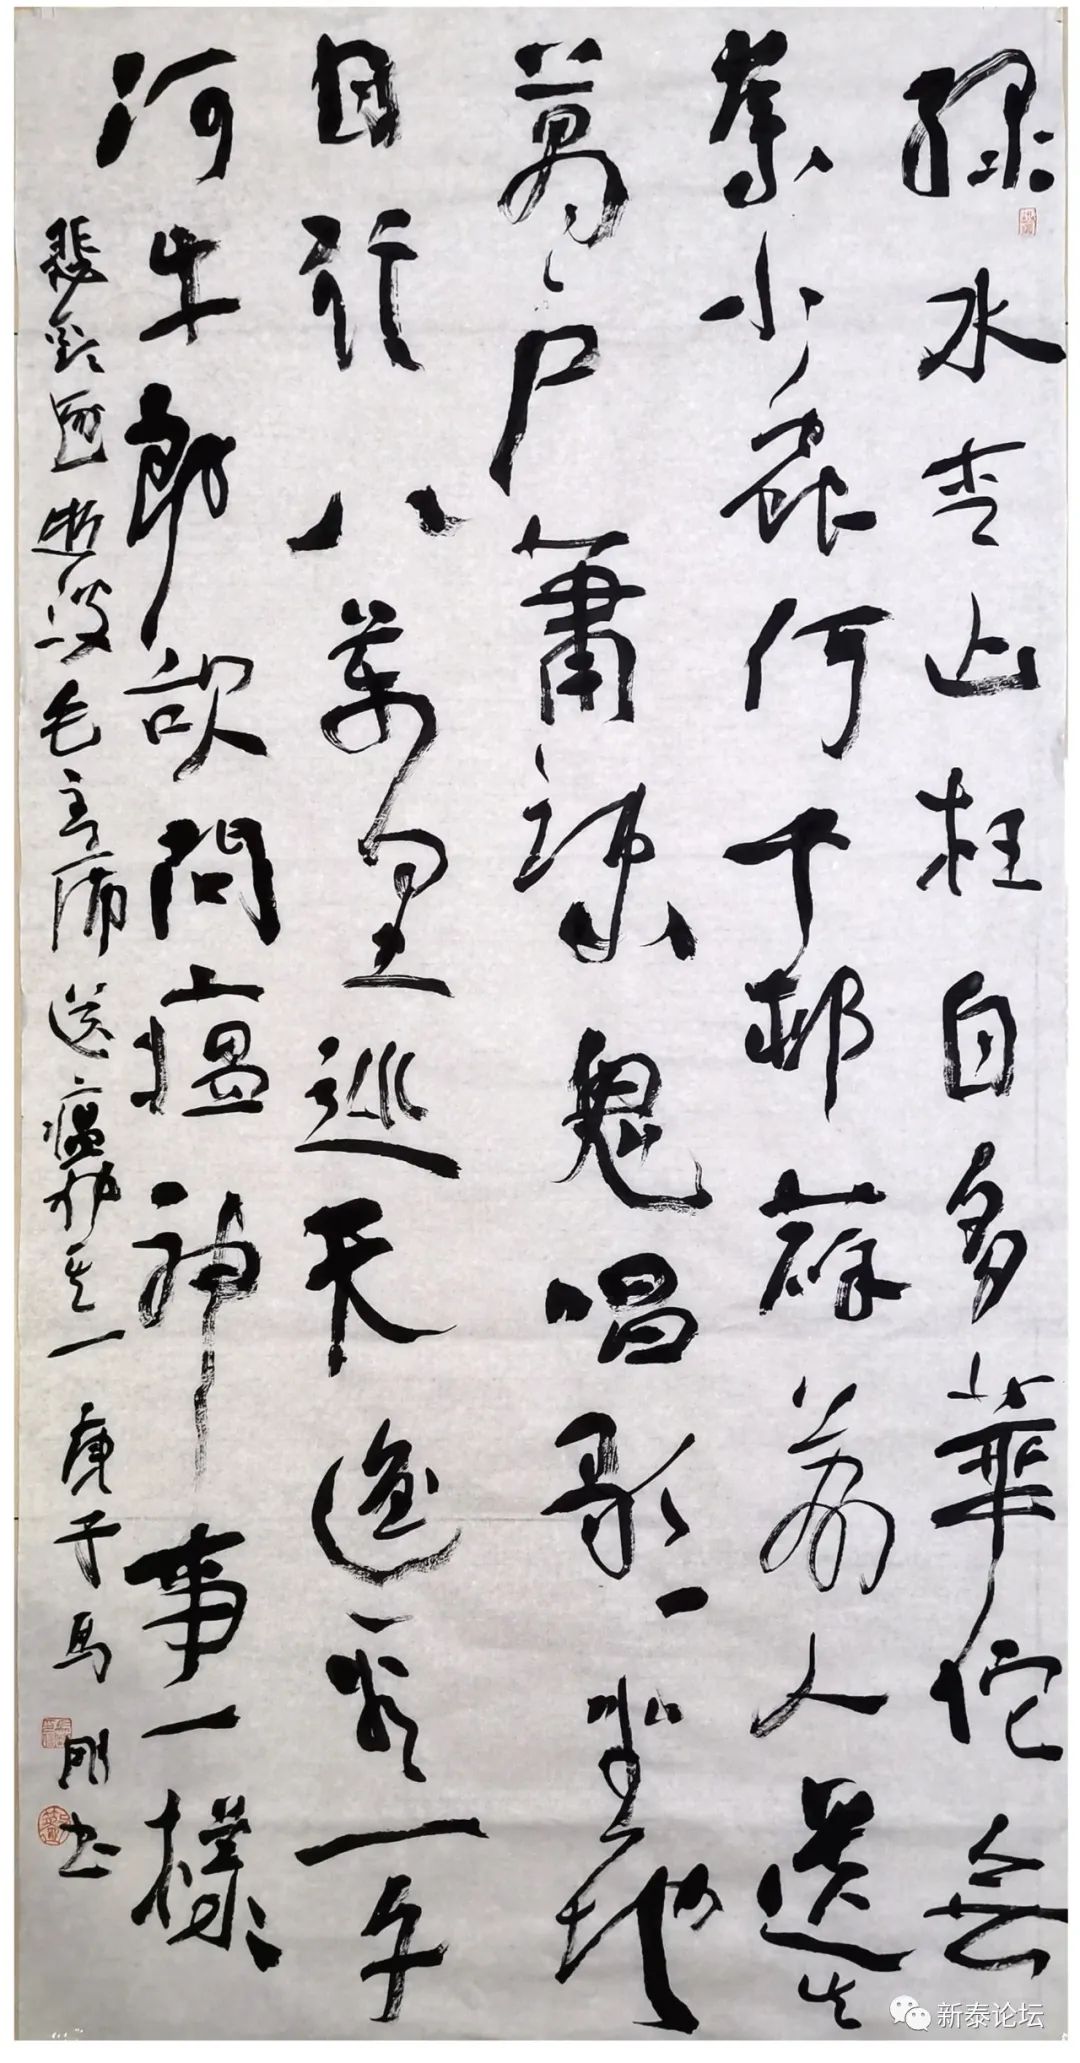 緑水青山枉自多華佗無
奈小蟲何千邨薜荔人遺矢
萬户蕭疎鬼唱歌坐地
日行八萬里巡天遥看一千
河牛郎欲問瘟神事一樣
悲歡逐逝波毛主席送瘟神其一庚子馬刚书
新泰论坛